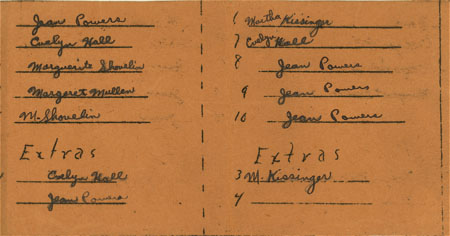 Jean Powers
Evelyn Hall
Marguerite Shovelin
Margaret Mullen
M. Shovelin
Extras
Evelyn Hall
Jean Powers
6 Martha Kissinger
7 Evelyn Hall
8 Jean Powers
9 Jean Powers
10 Jean Powers
Extras
3 M. Kissinger
4